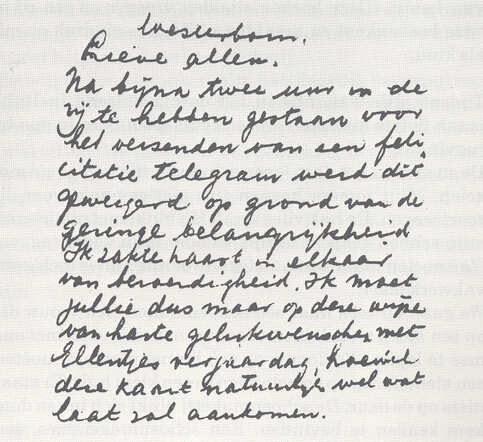 Westerbork.
Lieve allen.
Na bijna twee uur in de
rij te hebben gestaan voor
het verzenden van een feli„
citatie telegram werd dit
geweigerd op grond van de
geringe belangrijkheid
Ik zakte haast in elkaar
van beroerdigheid. Ik moet
jullie dus maar op deze wijze
van harte gelukwenschen met
Ellentjes verjaardag, hoewel
deze kaart natuurlijk wel wat
laat zal aankomen.